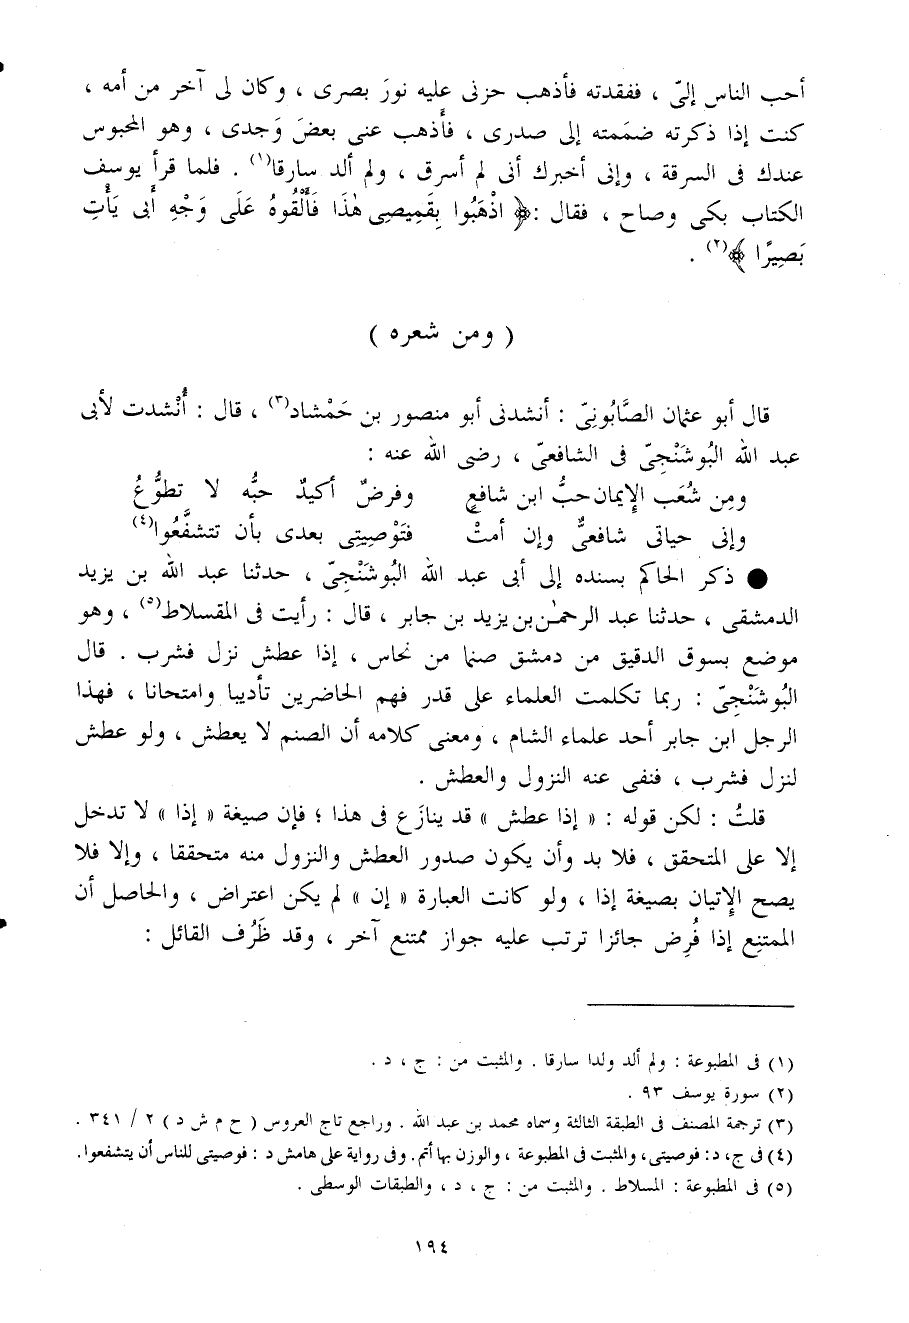 أحب الناس إلىّ ، ففقدته فأذهب حزنى عليه نورَ بصرى ، وكان لى آخر من أمه ،
كنت إذا ذكرته ضمَمته إلى صدرى ، فأَذهب عنى بعضَ وَجدى ، وهو المحبوس
عندك فى السرقة ، وإنى أخبرك أنى لم أسرق ، ولم ألد سارقا(١) . فلما قرأ يوسف
الكتاب بكى وصاح ، فقال : ﴿ اذْهَبُوا بِقَمِيصِى هٰذَا فَأَلْقُوهُ عَلَى وَجْهِ أَبِى يَأْتِ
بَصِيرًا ﴾(٢) .
( ومن شعره )
قال أبو عثمان الصَّابُونِىّ : أنشدنى أبو منصور بن حَمْشاد(٣) ، قال : أُنْشدت لأبى
عبد الله البُوشَنْجِىّ فى الشافعىّ ، رضى الله عنه :
ومِن شُعَب الإِيمان حبُّ ابن شافعٍ وفرضٌ أكيدٌ حبُّه لا تطوُّعُ
وإنى حياتى شافعىٌّ وإن أمتْ فتَوْصِيتِى بعدى بأن تتشفَّعُوا(٤)
● ذكر الحاكم بسنده إلى أبى عبد الله البُوشَنْجِىّ ، حدثنا عبد الله بن يزيد
الدمشقى ، حدثنا عبد الرحمٰن بن يزيد بن جابر ، قال : رأيت فى المقسلاط(٥) ، وهو
موضع بسوق الدقيق من دمشق صنما من نحاس ، إذا عطش نزل فشرب . قال
البُوشَنْجِىّ : ربما تكلمت العلماء على قدر فهم الحاضرين تأديبا وامتحانا ، فهذا
الرجل ابن جابر أحد علماء الشام ، ومعنى كلامه أن الصنم لا يعطش ، ولو عطش
لنزل فشرب ، فنفى عنه النزول والعطش .
قلتُ : لكن قوله : « إذا عطش » قد ينازَع فى هذا ؛ فإن صيغة « إذا » لا تدخل
إلا على المتحقق ، فلا بد وأن يكون صدور العطش والنزول منه متحققا ، وإلا فلا
يصح الإِتيان بصيغة إذا ، ولو كانت العبارة « إن » لم يكن اعتراض ، والحاصل أن
الممتنِع إذا فُرِض جائزا ترتب عليه جواز ممتنع آخر ، وقد ظَرُف القائل :
(١) فى المطبوعة : ولم ألد ولدا سارقا . والمثبت من : ج ، د .
(٢) سورة يوسف ٩٣ .
(٣) ترجمة المصنف فى الطبقة الثالثة وسماه محمد بن عبد الله . وراجع تاج العروس ( ح م ش د ) ٢ / ٣٤١ .
(٤) فى ج، د : فوصيتى، والمثبت فى المطبوعة ، والوزن بها أتم. وفى رواية على هامش د : فوصيتى للناس أن يتشفعوا.
(٥) فى المطبوعة : المسلاط . والمثبت من : ج ، د ، والطبقات الوسطى .
١٩٤